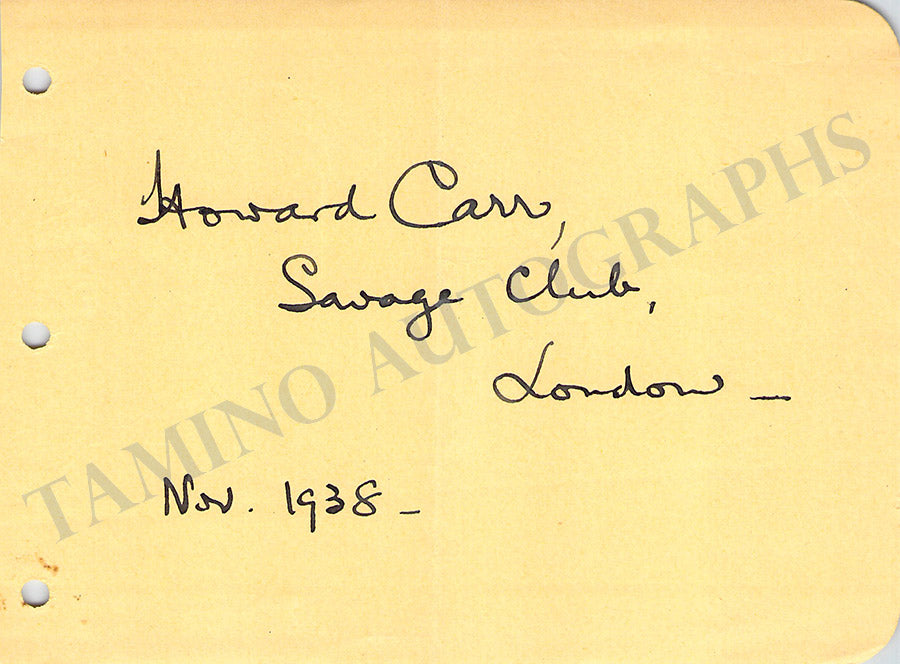 Howard Carr,
Savage Club,
London —
Nov. 1938 –
TAMINO AUTOGRAPHS